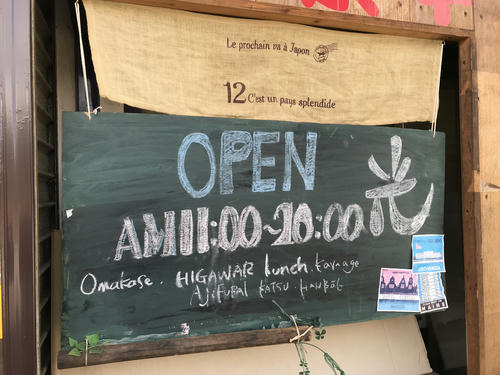 Le prochain va à Japon
12 C'est un pays splendide
OPEN
AM11:00~20:00 光
Omakase. HIGAWAR lunch. Karaage
AJIFURAI KATSU HANBAG